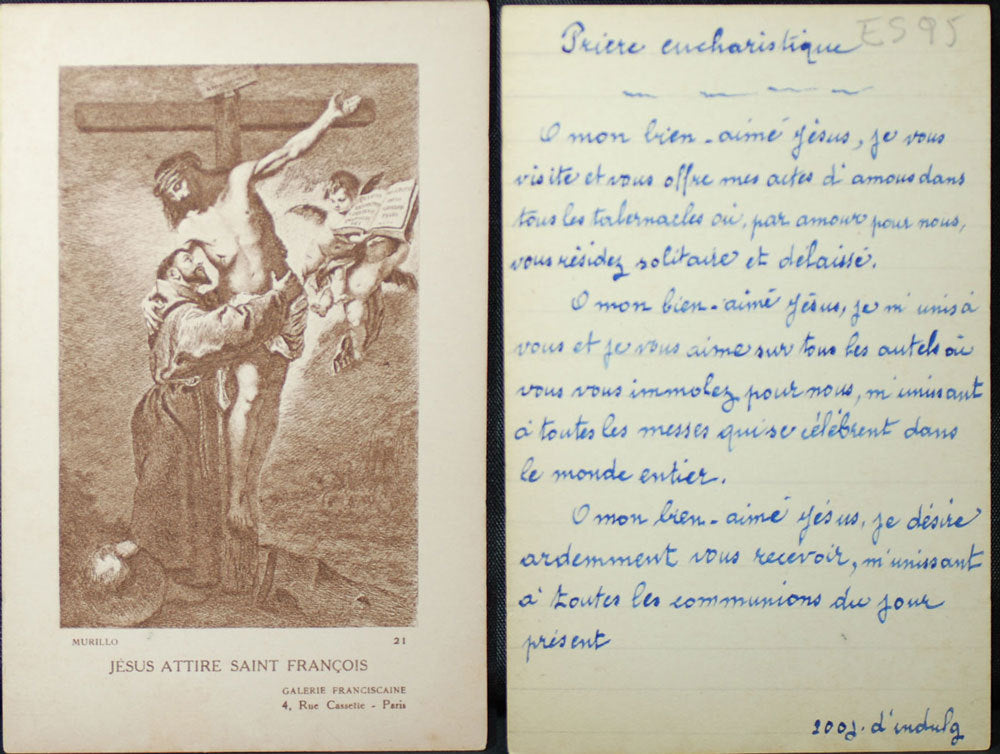 MURILLO 21
JÉSUS ATTIRE SAINT FRANÇOIS
GALERIE FRANCISCAINE
4, Rue Cassette - Paris
ES95
Prière eucharistique
O mon bien-aimé Jésus, je vous
visite et vous offre mes actes d'amous dans
tous les tabernacles où, par amour pour nous,
vous résidez solitaire et délaissé.
O mon bien-aimé Jésus, je m'unis à
vous et je vous aime sur tous les autels où
vous vous immolez pour nous, m'unissant
à toutes les messes qui se célèbrent dans
le monde entier.
O mon bien-aimé Jésus, je désire
ardemment vous recevoir, m'unissant
à toutes les communions du jour
présent
200j. d'indulg